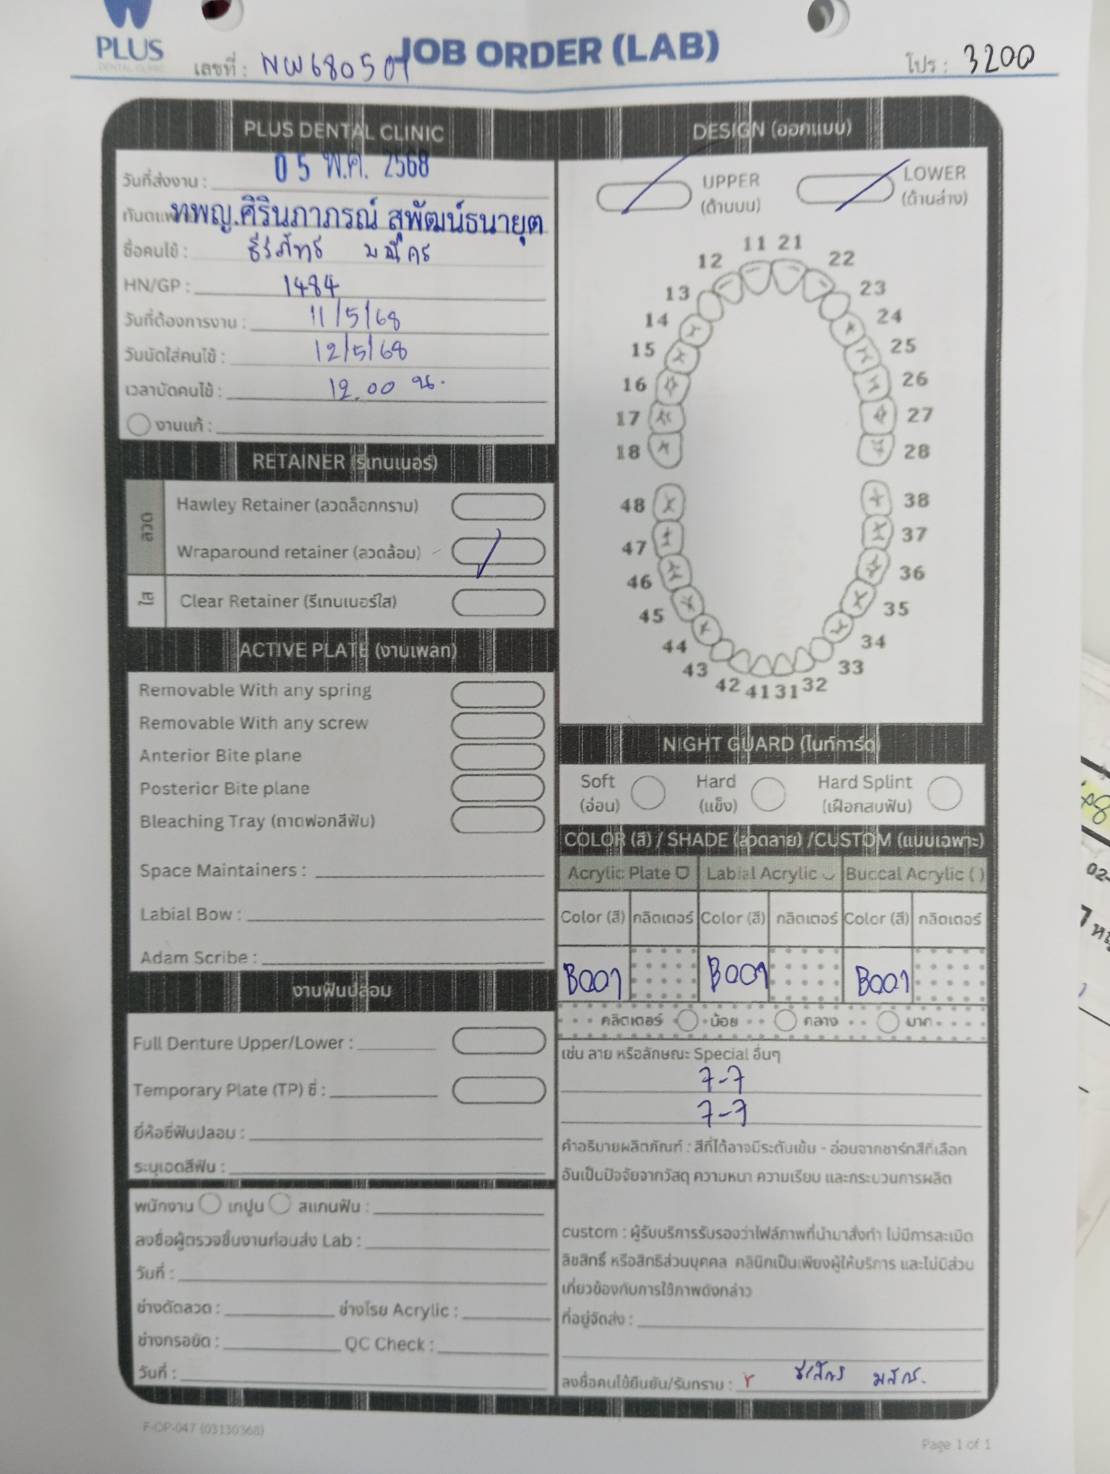 PLUS
DENTAL CLINIC
JOB ORDER (LAB)
เลขที่ : NW680507
โปร : 3200
PLUS DENTAL CLINIC
วันที่ส่งงาน : 05 พ.ค. 2568
ทันตแพทย์ ทพญ.ศิรินภาภรณ์ สุพัฒน์ธนายุต
ชื่อคนไข้ : ธีรภัทร์
HN/GP : 1484
วันที่ต้องการงาน : 11/5/68
วันนัดใส่คนไข้ : 12/5/68
เวลานัดคนไข้ : 12.00 น.
งานแก้ :
RETAINER (รีเทนเนอร์)
ลวด
Hawley Retainer (ลวดล็อกกราม)
Wraparound retainer (ลวดล้อม)
ใส
Clear Retainer (รีเทนเนอร์ใส)
ACTIVE PLATE (งานเพลท)
Removable With any spring
Removable With any screw
Anterior Bite plane
Posterior Bite plane
Bleaching Tray (ถาดฟอกสีฟัน)
Space Maintainers :
Labial Bow :
Adam Scribe :
งานฟันปลอม
Full Denture Upper/Lower :
Temporary Plate (TP) ซี่ :
ยี่ห้อซี่ฟันปลอม :
ระบุเฉดสีฟัน :
พนักงาน เทปูน สแกนฟัน :
ลงชื่อผู้ตรวจชิ้นงานก่อนส่ง Lab :
วันที่ :
ช่างดัดลวด : ช่างโรย Acrylic :
ช่างกรอขัด : QC Check :
วันที่ :
DESIGN (ออกแบบ)
UPPER (ด้านบน)
LOWER (ด้านล่าง)
11 21
12 22
13 23
14 24
15 25
16 26
17 27
18 28
48 38
47 37
46 36
45 35
44 34
43 33
42 41 31 32
NIGHT GUARD (ไนท์การ์ด)
Soft (อ่อน) Hard (แข็ง) Hard Splint (เฝือกสบฟัน)
COLOR (สี) / SHADE (ลวดลาย) /CUSTOM (แบบเฉพาะ)
Acrylic Plate Labial Acrylic Buccal Acrylic ( )
Color (สี) กลิตเตอร์ Color (สี) กลิตเตอร์ Color (สี) กลิตเตอร์
B007 B007 B007
กลิตเตอร์ น้อย กลาง มาก
เช่น ลาย หรือลักษณะ Special อื่นๆ
7-7
7-7
คำอธิบายผลิตภัณฑ์ : สีที่ได้อาจมีระดับเข้ม - อ่อนจากชาร์ทสีที่เลือก
อันเป็นปัจจัยจากวัสดุ ความหนา ความเรียบ และกระบวนการผลิต
custom : ผู้รับบริการรับรองว่าไฟล์ภาพที่นำมาสั่งทำ ไม่มีการละเมิด
ลิขสิทธิ์ หรือสิทธิส่วนบุคคล คลินิกเป็นเพียงผู้ให้บริการ และไม่มีส่วน
เกี่ยวข้องกับการใช้ภาพดังกล่าว
ที่อยู่จัดส่ง :
ลงชื่อคนไข้ยืนยัน/รับทราบ :
F-OP-047 (03130368)
Page 1 of 1